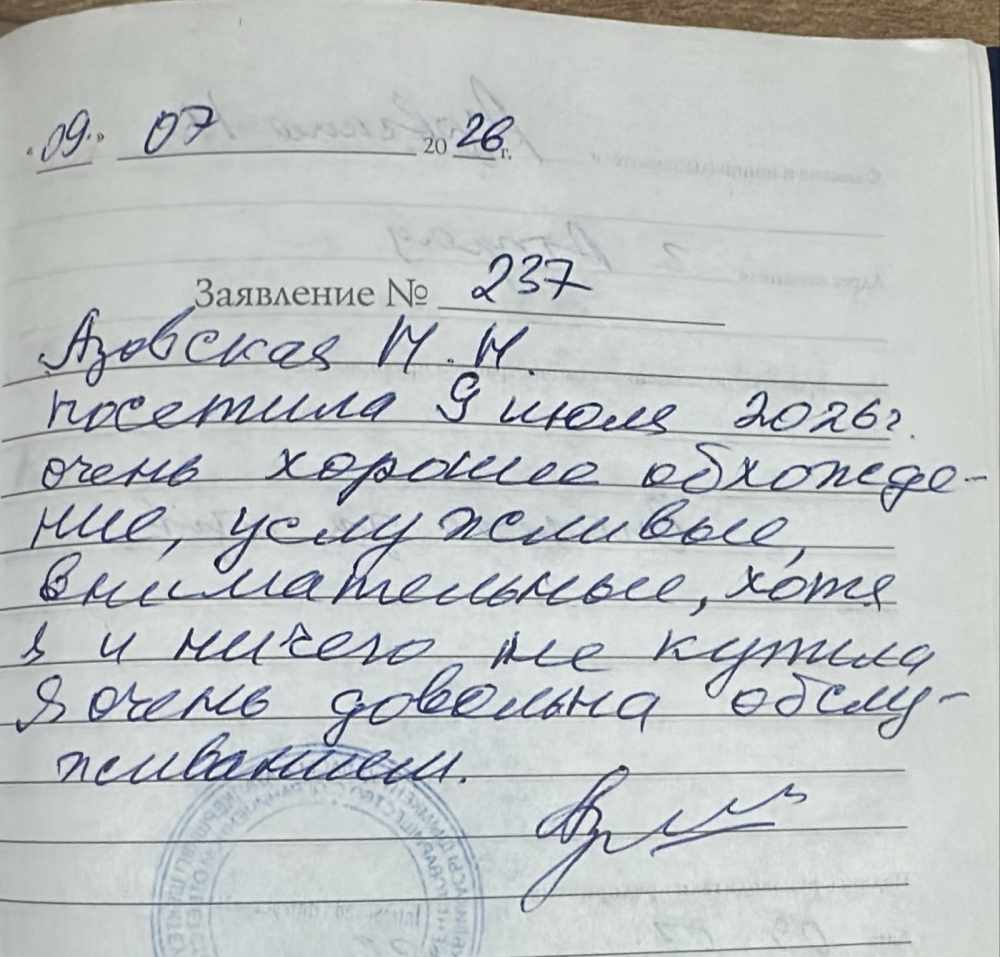 « 09 » 07 2026 г.
Заявление № 237
Азовская Н. Н.
посетила 9 июля 2026г.
очень хорошее обхожде-
ние, услужливые,
внимательные, хотя
я и ничего не купила
Я очень довольна обслу-
живанием.